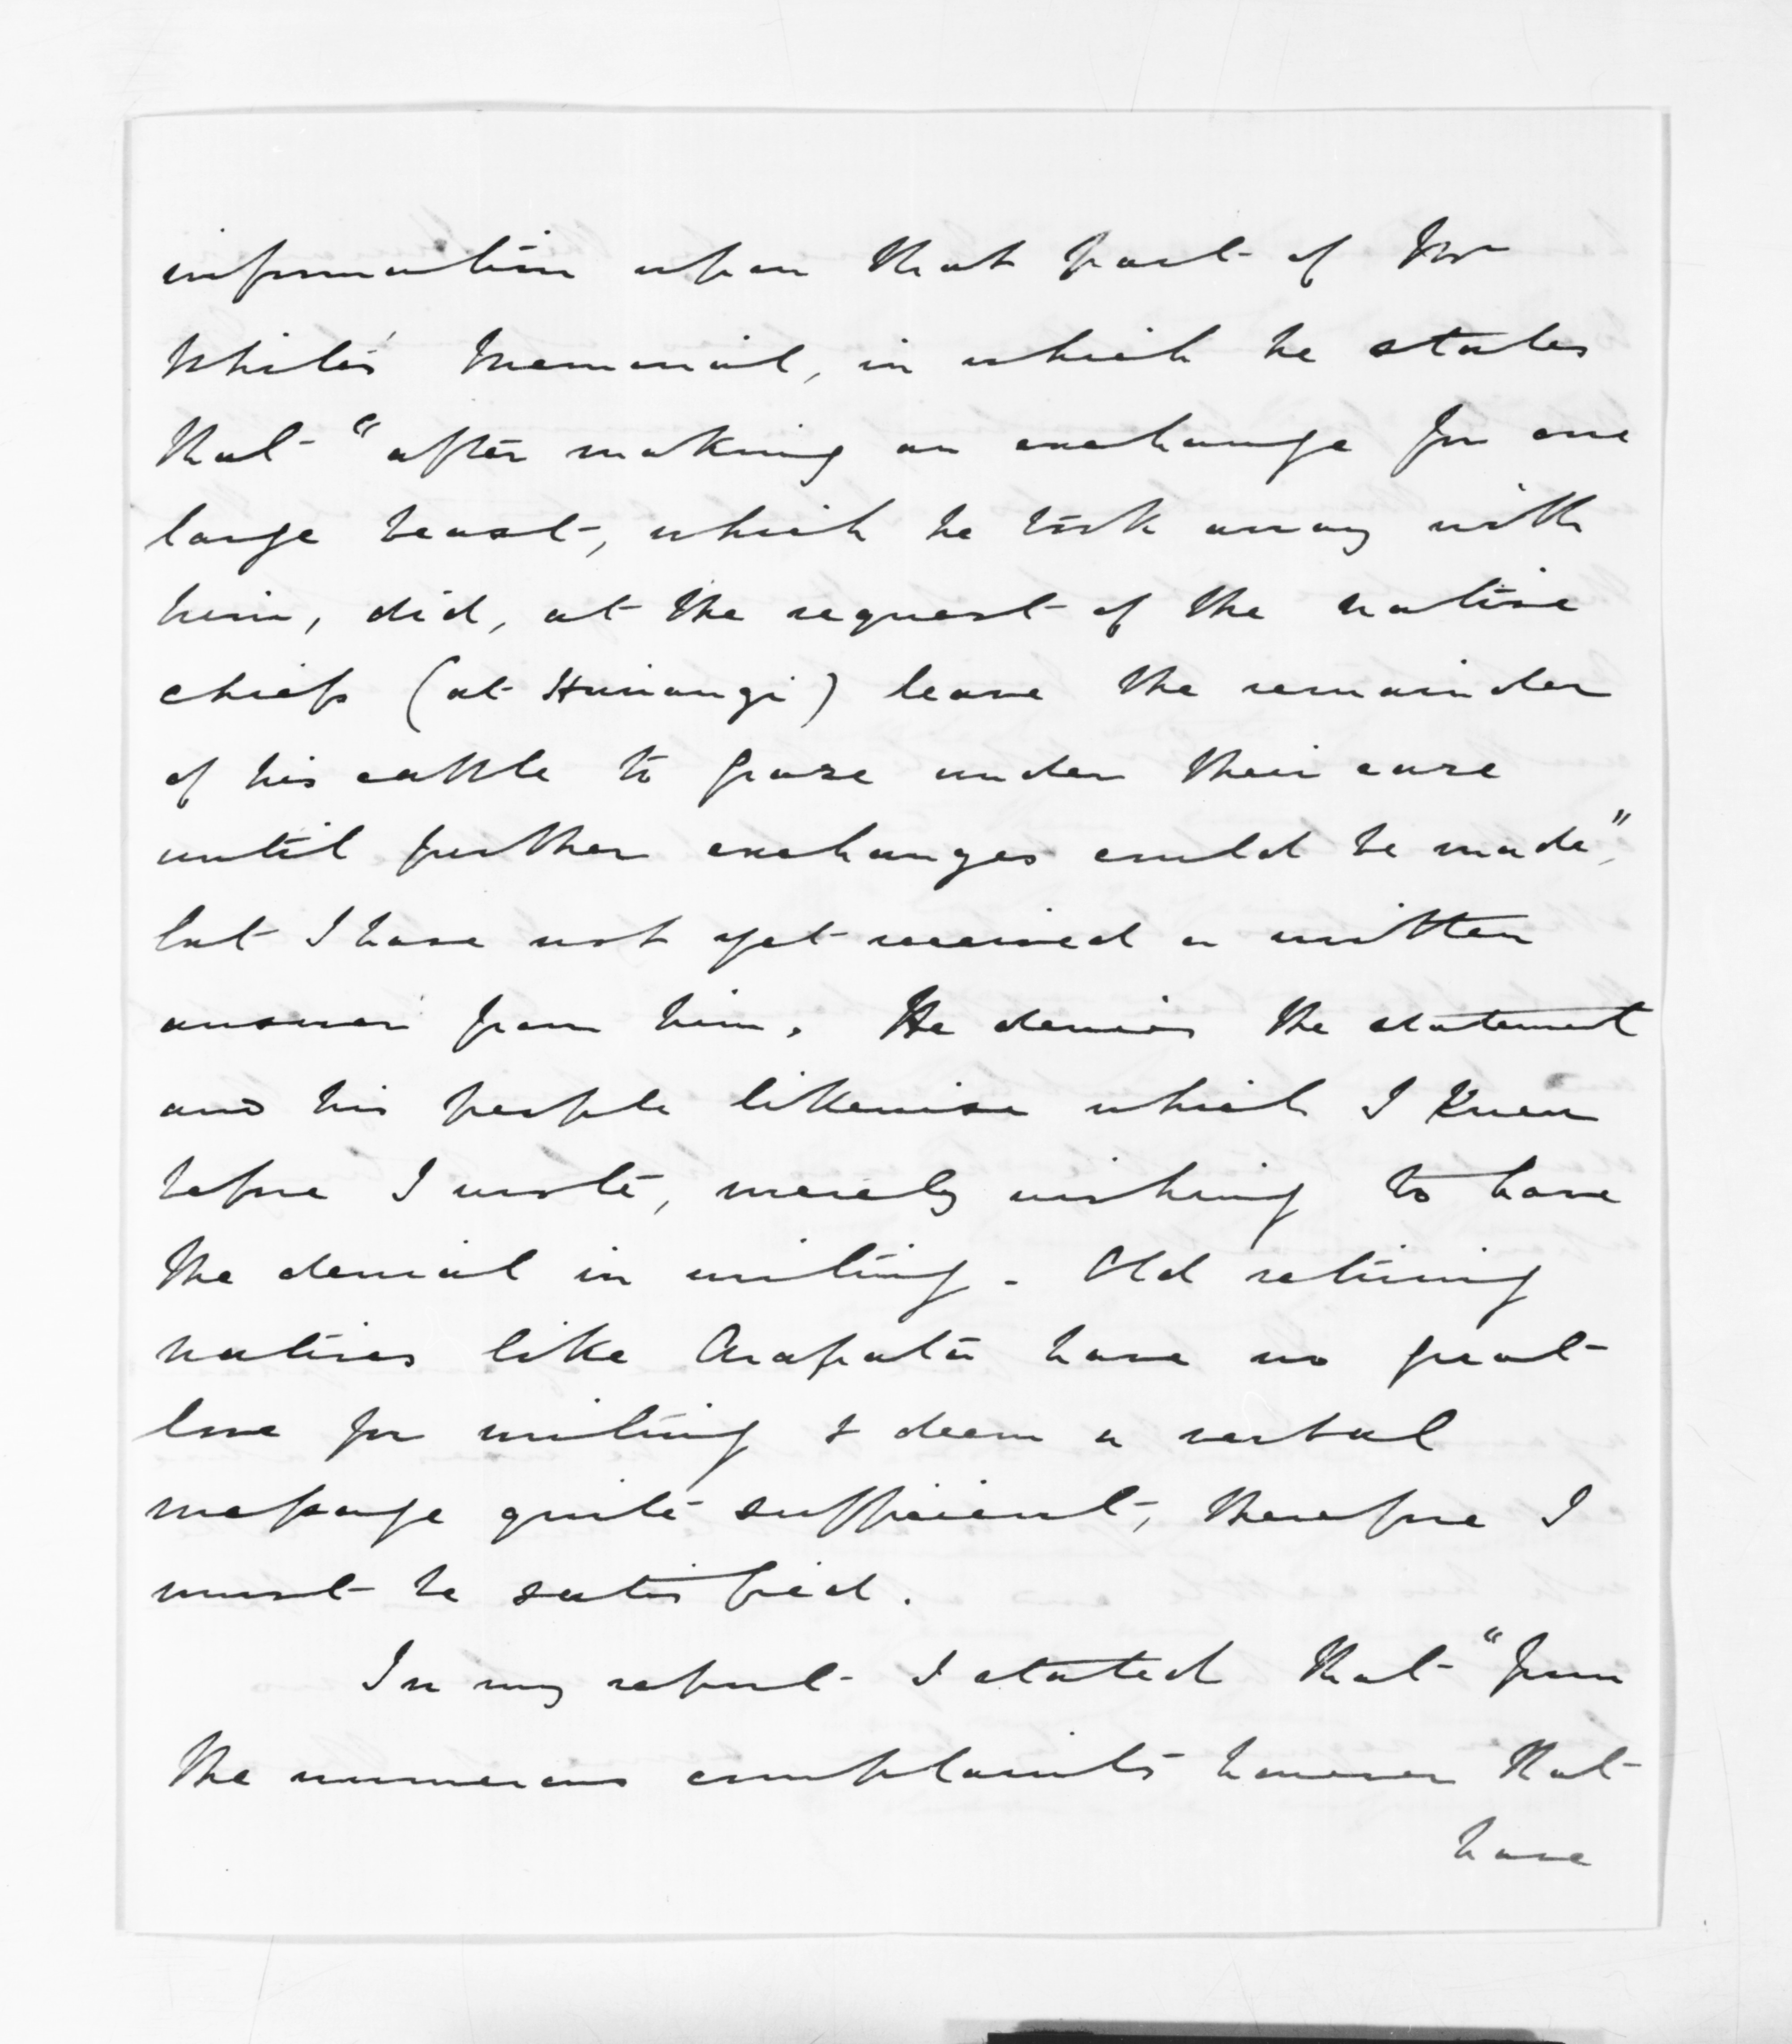 information upon that part of Mr
White's Memorial, in which he states
that "after making an exchange for one
large beast, which he took away with
him, did, at the request of the native
chiefs (at Hurangi) leave the remainder
of his cattle to graze under their care
until further exchanges could be made",
but I have not yet received a written
answer from him. He denies the statement
and his people likewise which I knew
before I wrote, merely wishing to have
the denial in writing. Old retiring
natives like Arapata have no great
love for writing & deem a verbal
message quite sufficient, therefore I
must be satisfied.
In my report I stated that "from
the numerous complaints however that
have